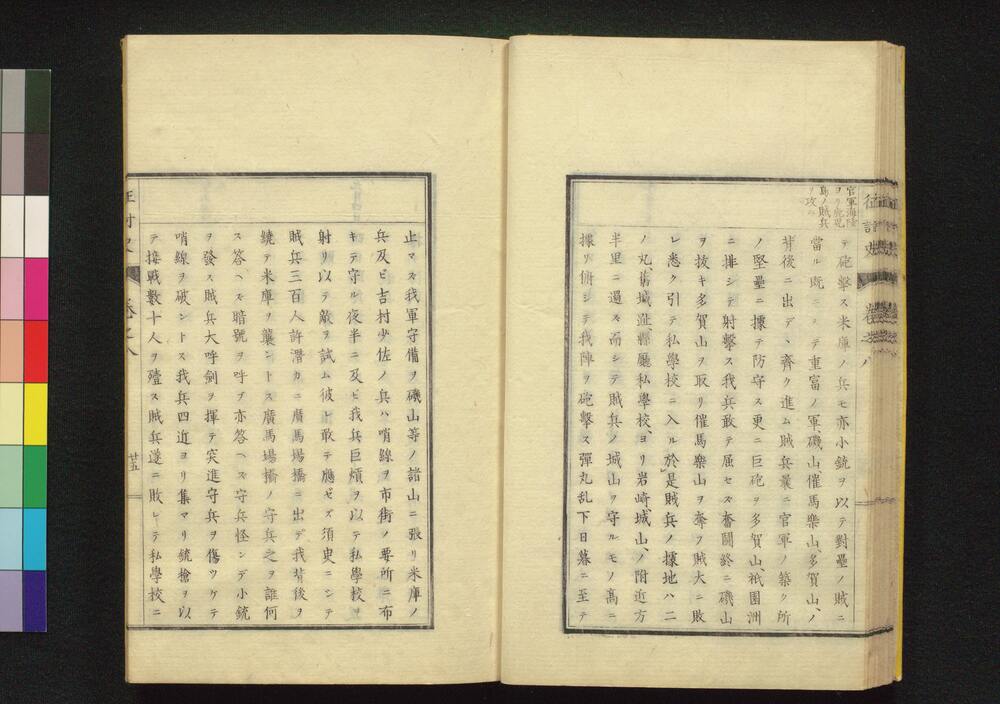 官軍海陸
ヨリ鹿児
島ノ賊兵
ヲ攻ム
テ砲擊ス米庫ノ兵モ亦小銃ヲ以テ對壘ノ賊ニ
當ル既ニシテ重富ノ軍、磯山、催馬樂山、多賀山、ノ
背後ニ出デ、齊ク進ム賊兵曩ニ官軍ノ築ク所
ノ堅壘ニ據テ防守ス更ニ巨砲ヲ多賀山、祇園洲
ニ排シテ射擊ス我兵敢テ屈セス奮鬪終ニ磯山
ヲ抜キ多賀山ヲ取リ催馬樂山ヲ奪フ賊大ニ敗
レ悉ク引テ私學校ニ入ル於是賊兵ノ據地ハ二
ノ丸、舊城趾縣廳私學校、ヨリ岩崎、城山、ノ附近方
半里ニ過ス而シテ賊兵ノ城山ヲ守ルモノ高ニ
據リ俯シテ我陣ヲ砲擊ス彈丸乱下日暮ニ至テ
征討史
卷之八
止マス我軍守備ヲ磯山等ノ諸山ニ張リ米庫ノ
兵及ビ吉村少佐ノ兵ハ哨線ヲ市街ノ要所ニ布
キテ守ル夜半ニ及ビ我兵巨煩ヲ以テ私學校ヲ
射リ以テ敵ヲ試ム彼レ敢テ應ゼズ須臾ニシテ
賊兵三百人許潛カニ廣馬場橋ニ出デ我背後ヲ
繞テ米庫ヲ襲ントス廣馬場橋ノ守兵之ヲ誰何
ス答ヘス暗號ヲ呼ブ亦答ヘス守兵怪ンデ小銃
ヲ發ス賊兵大呼劍ヲ揮テ突進守兵ヲ傷ツケテ
哨線ヲ破ントス我兵四近ヨリ集マリ銃槍ヲ以
テ接戰數十人ヲ殪ス賊兵遂ニ敗レテ私學校ニ
征討史
卷之八
廿五